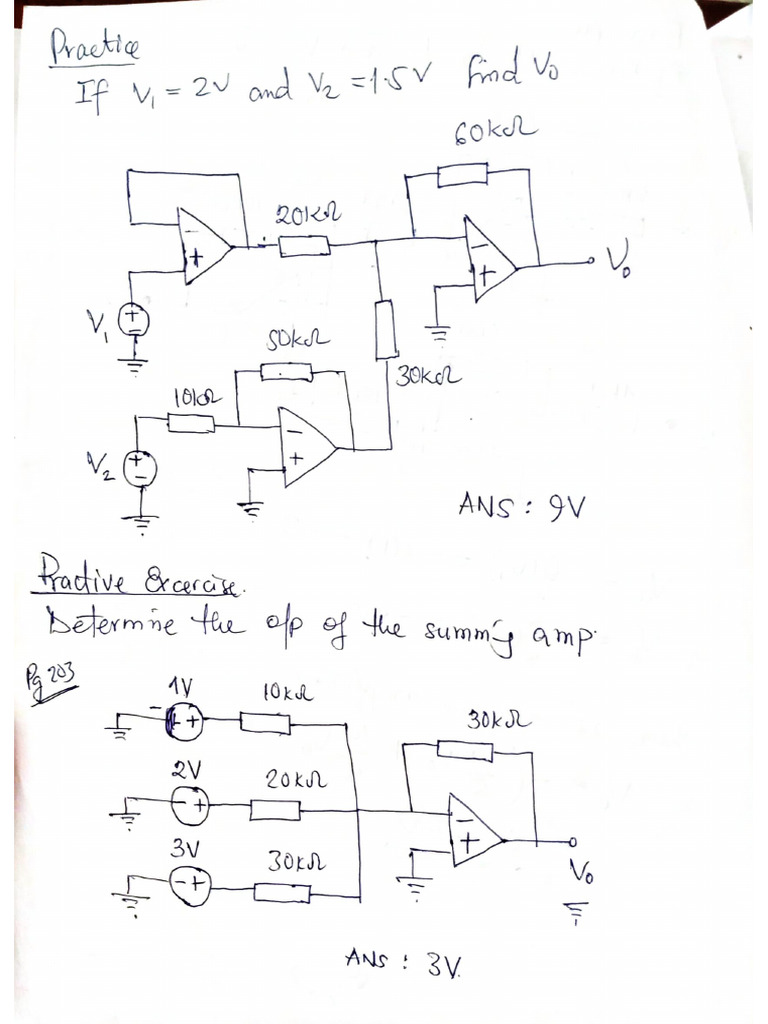 Practice
If V₁ = 2V and V₂ = 1.5V find V₀
60kΩ
20kΩ
−
+
−
+
V₀
V₁
+
−
50kΩ
30kΩ
10kΩ
−
+
V₂
+
−
ANS : 9V
Practive Excercise.
Determine the o/p of the summing amp.
Pg 203
1V
10kΩ
30kΩ
− +
2V
20kΩ
− +
−
+
3V
30kΩ
V₀
− +
ANS : 3V.